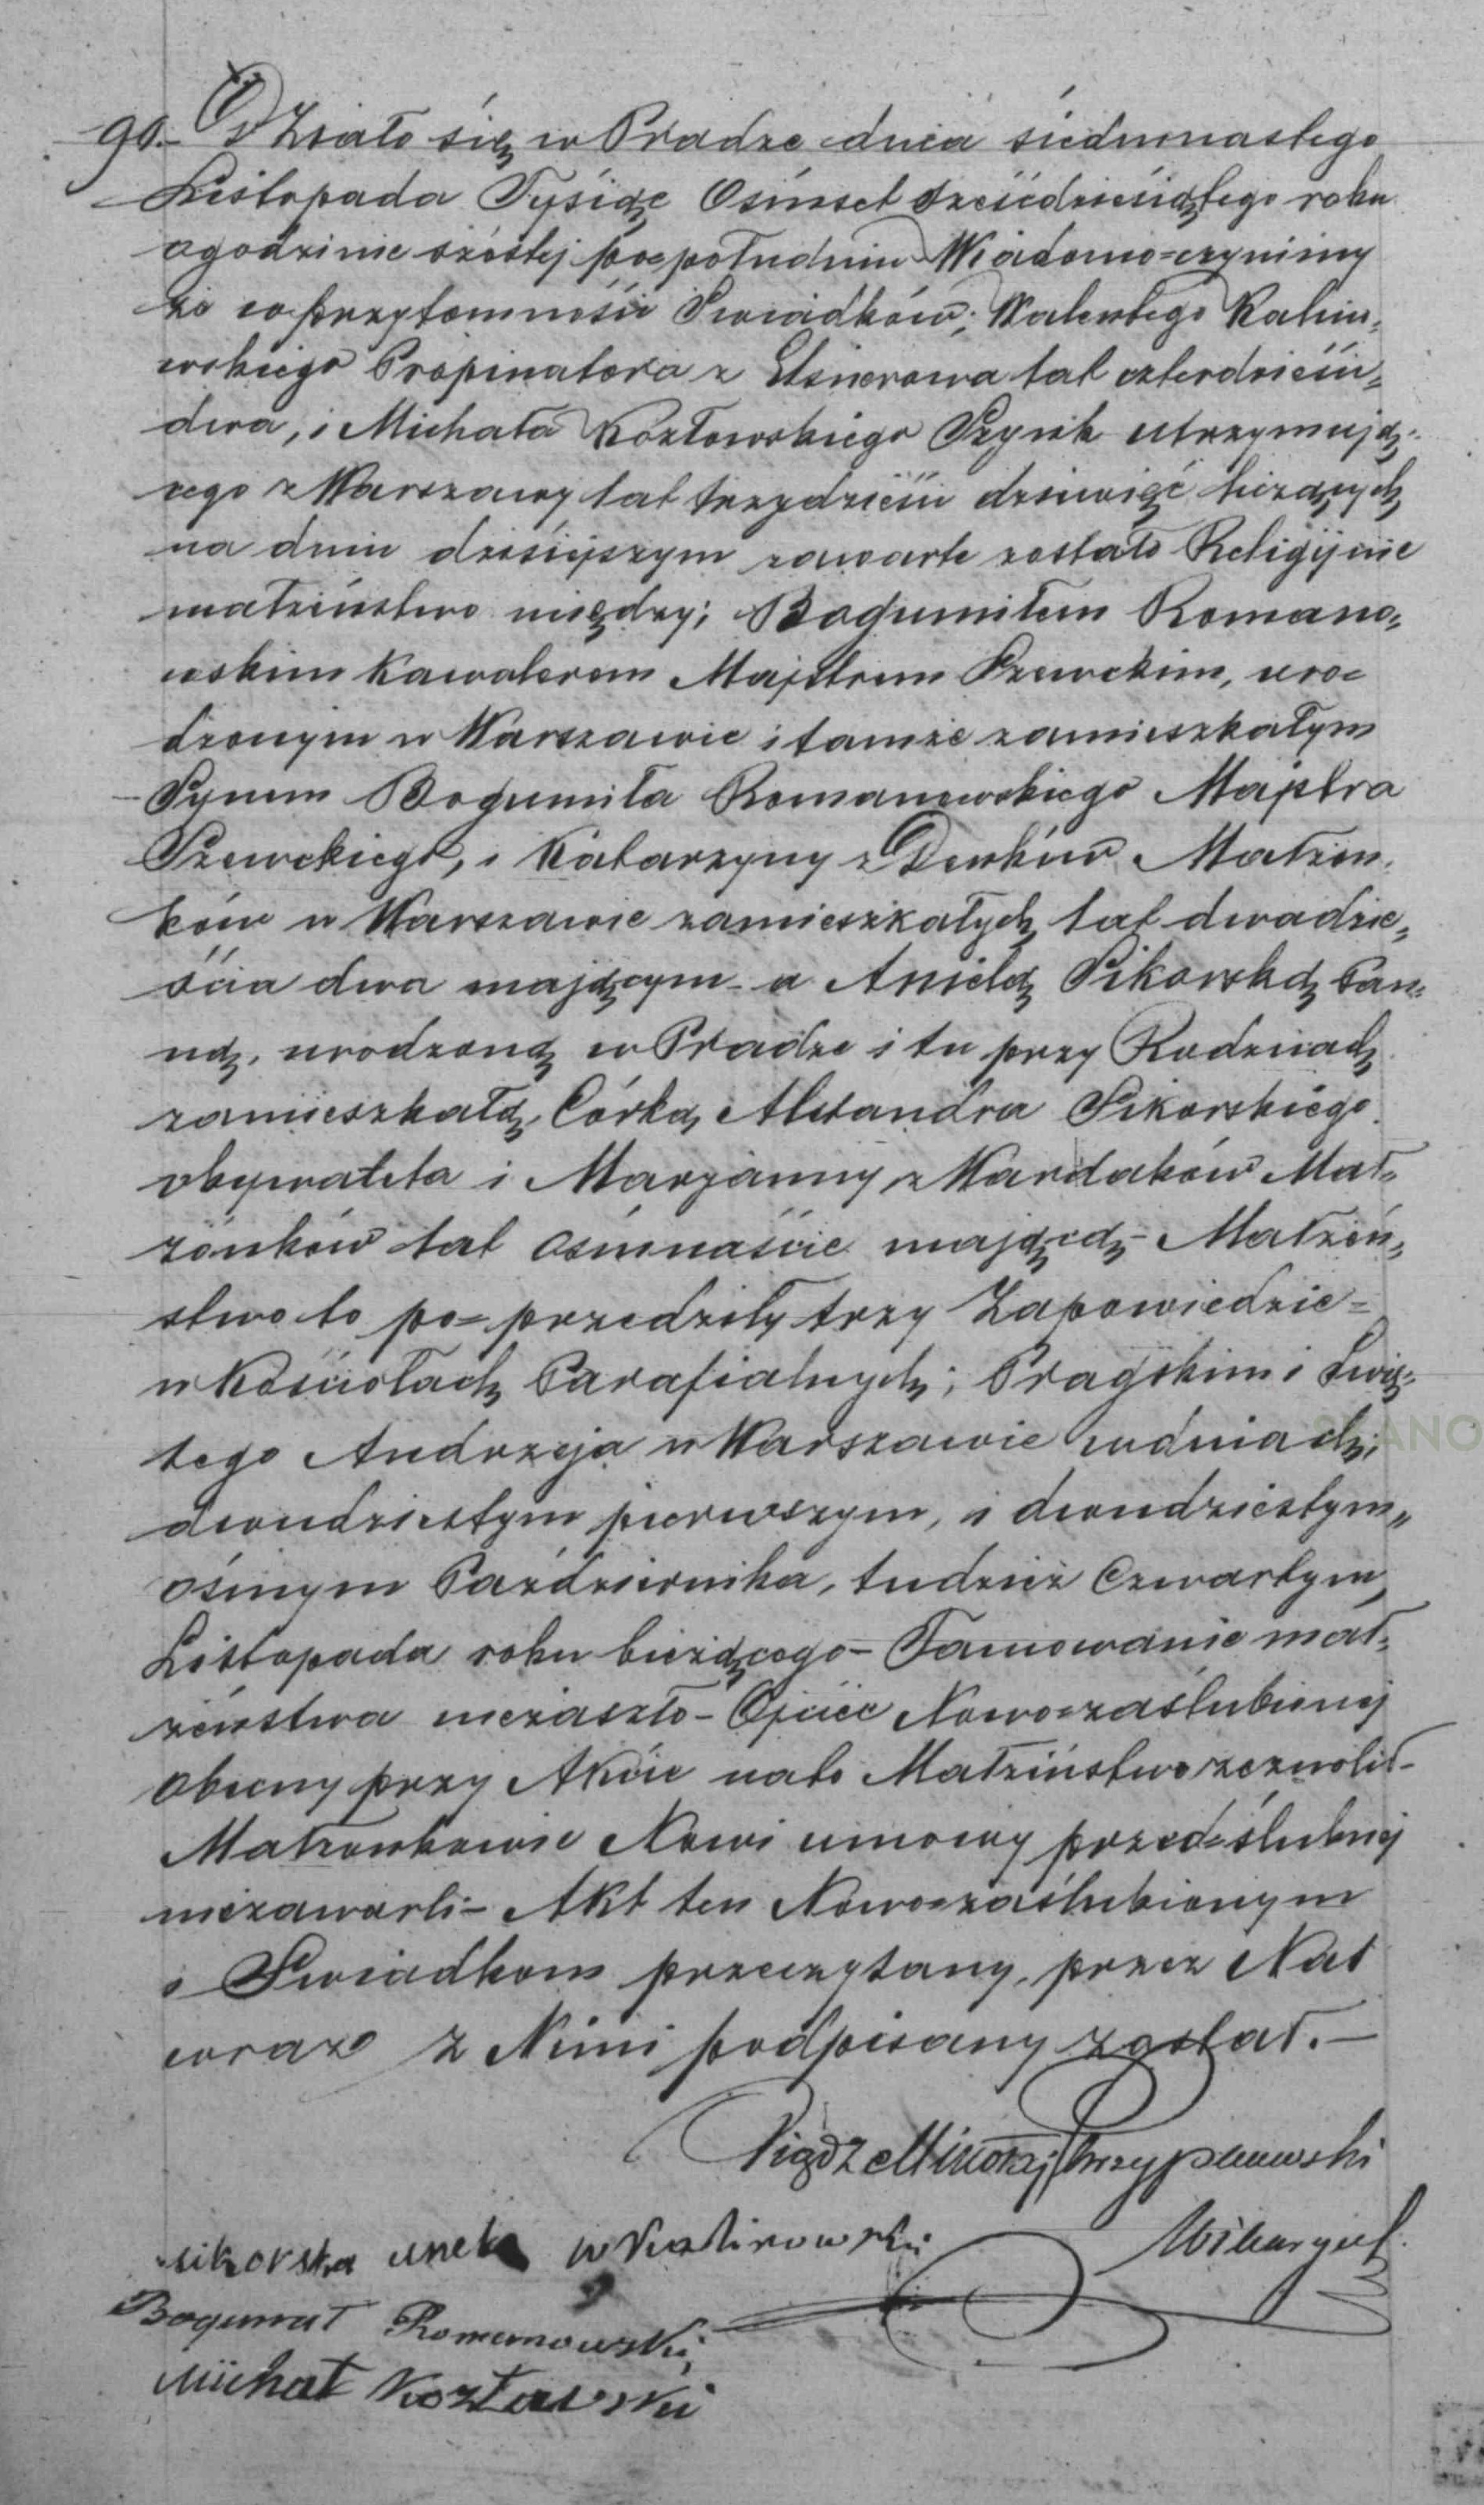 90. Działo się w Pradze dnia siedmnastego
Listopada Tysiąc Osmset sześćdziesiątego roku
o godzinie szóstej po=południu Wiadomo=czynimy
że w przytomności Swiadków; Walentego Kalin=
wskiego Propinatora z Elsnerowa lat czterdzieści=
dwa, i Michała Kozłowskiego Szynk utrzymują=
cego z Warszawy lat trzydzieści dziewięć liczących
na dniu dzisiejszym zawarte zostało Religijnie
małżeństwo między; Bogumiłem Romano=
wskim Kawalerem Majstrem Szewckim, uro=
dzonym w Warszawie i tamże zamieszkałym
Synem Bogumiła Romanowskiego Majstra
Szewckiego, i Katarzyny z Małżon=
ków w Warszawie zamieszkałych lat dwadzie=
ścia dwa mającym – a Anielą Sikorską Pan=
ną, urodzoną w Pradze i tu przy Rodzicach
zamieszkałą, Córką Alexandra Sikorskiego
obywatela i Maryanny z Wardaków Mał=
żonków lat ośmnaście mającą – Małżeń=
stwo to po=przedziły trzy Zapowiedzie =
w Kościołach Parafialnych; Pragskim i Swię=
tego Andrzeja w Warszawie w dniach;
dwudziestym pierwszym, i dwudziestym=
ósmym Października, tudzież Czwartym
Listopada roku bieżącego – Tamowanie mał=
żeństwa niezaszło – Ojciec Nowo=zaślubionej
obecny przy Akcie na to Małżeństwo zezwolił –
Małżonkowie Nowi umowy przed=ślubnej
niezawarli – Akt ten Nowo=zaślubionym
i Swiadkom przeczytany, przez Nas
wraz z Nimi podpisany został. –
Xiądz Mikołaj
Sikorska
Bogumił Romanowski
Michał Kozławski